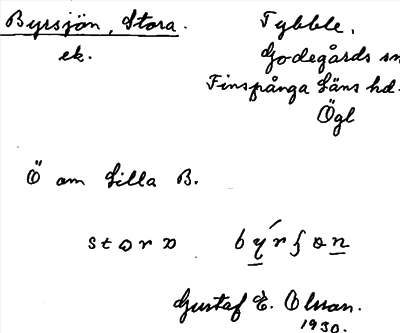 Byrsjön, Stora.
Tybble,
ek.
Godegårds sn
Finspånga Läns hd.
Ögl
Ö om Lilla B.
Gustaf E. Olsson.
1930.